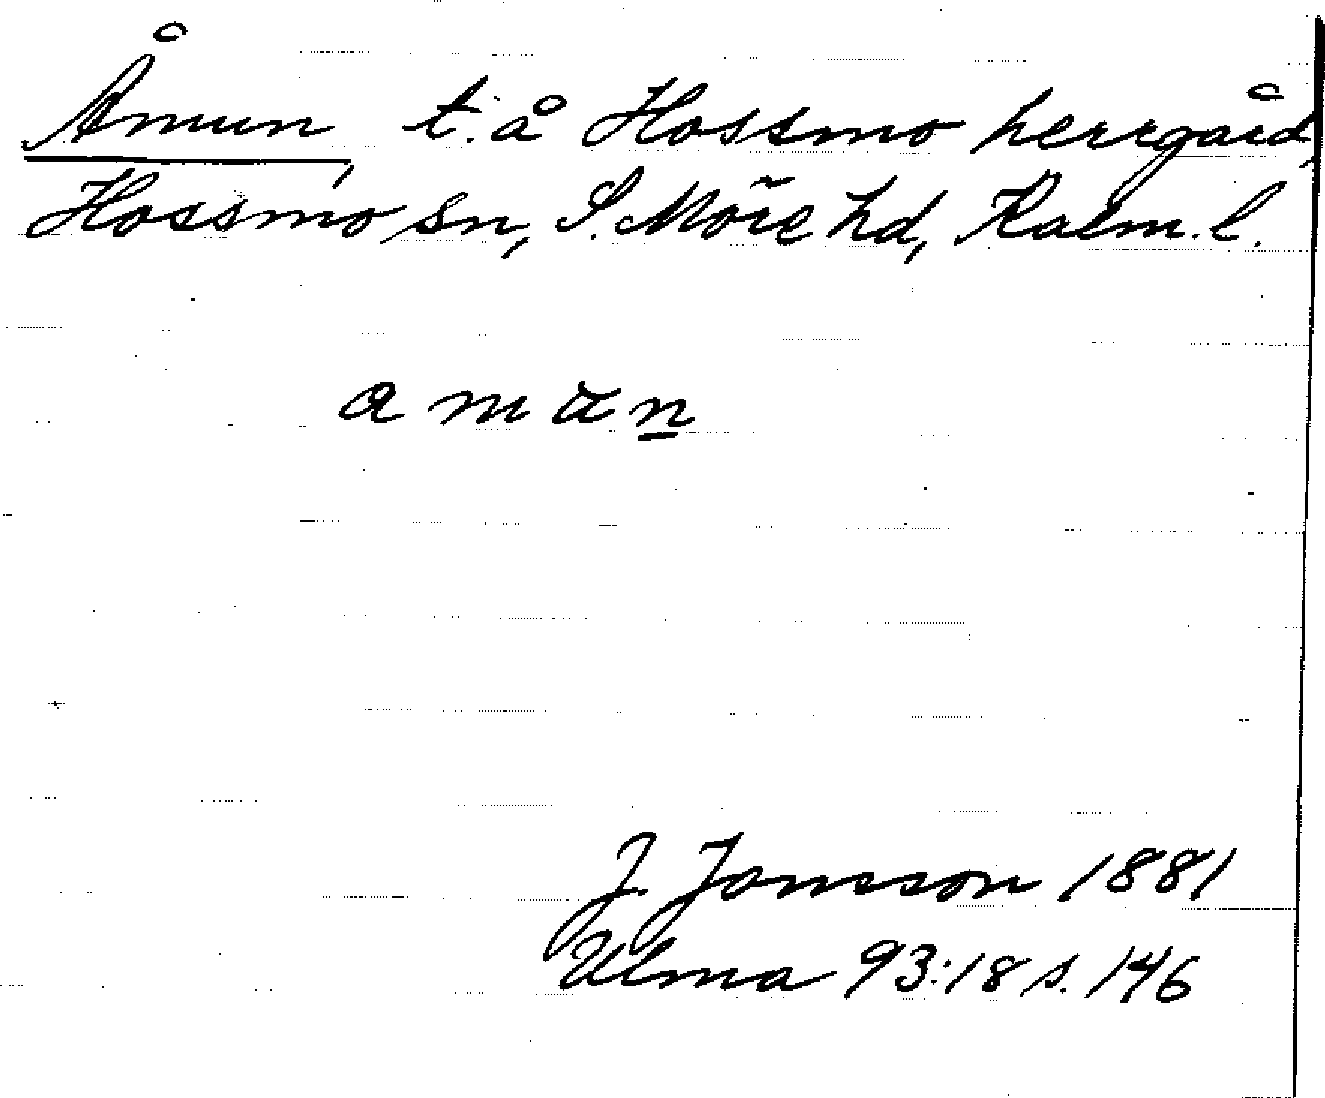 Åmun, t. å Hossmo herrgård,
Hossmo sn, S. Möre hd, Kalm. l.
a m u n
J. Jonsson 1881
Ulma 93:18 s. 146